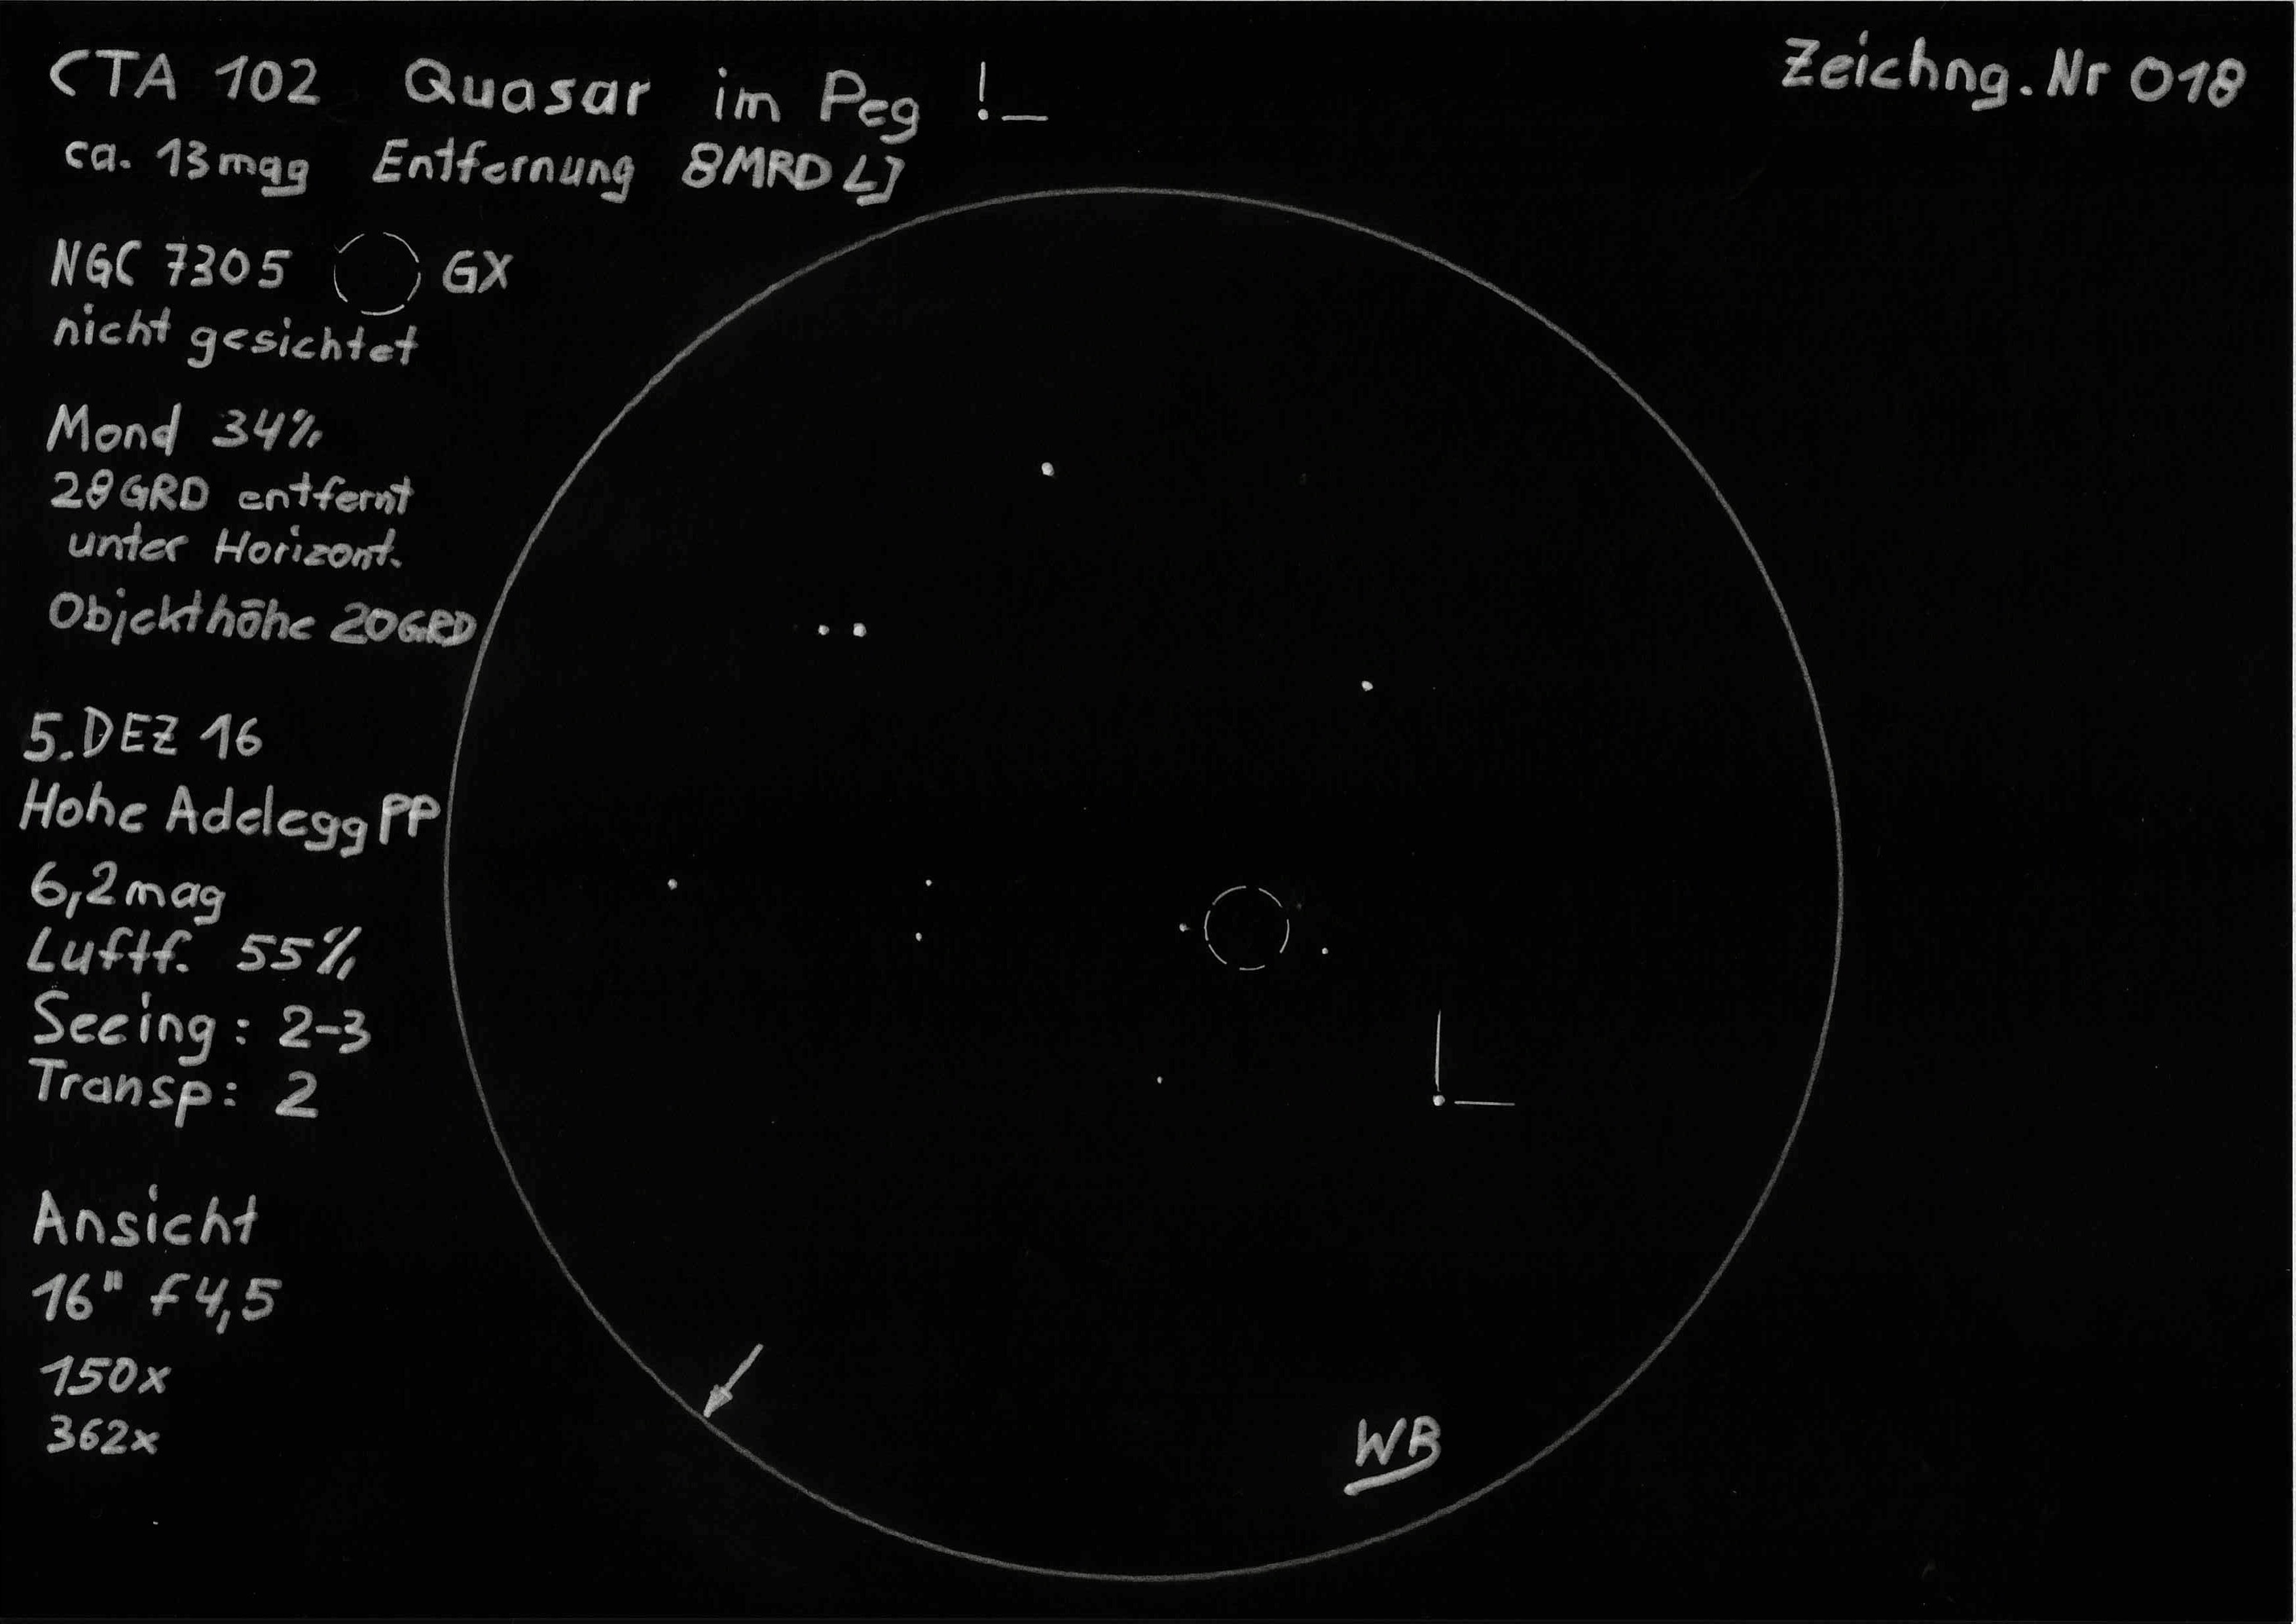 CTA 102 Quasar im Peg
Zeichng. Nr 018
ca. 13mag Entfernung 8MRD LJ
NGC 7305 GX
nicht gesichtet
Mond 34%
28GRD entfernt
unter Horizont.
Objekthöhe 20GRD
5. DEZ 16
Hohe Addlegg PP
6,2mag
Luftf. 55%
Seeing: 2-3
Transp: 2
Ansicht
16" f 4,5
150x
362x
WB